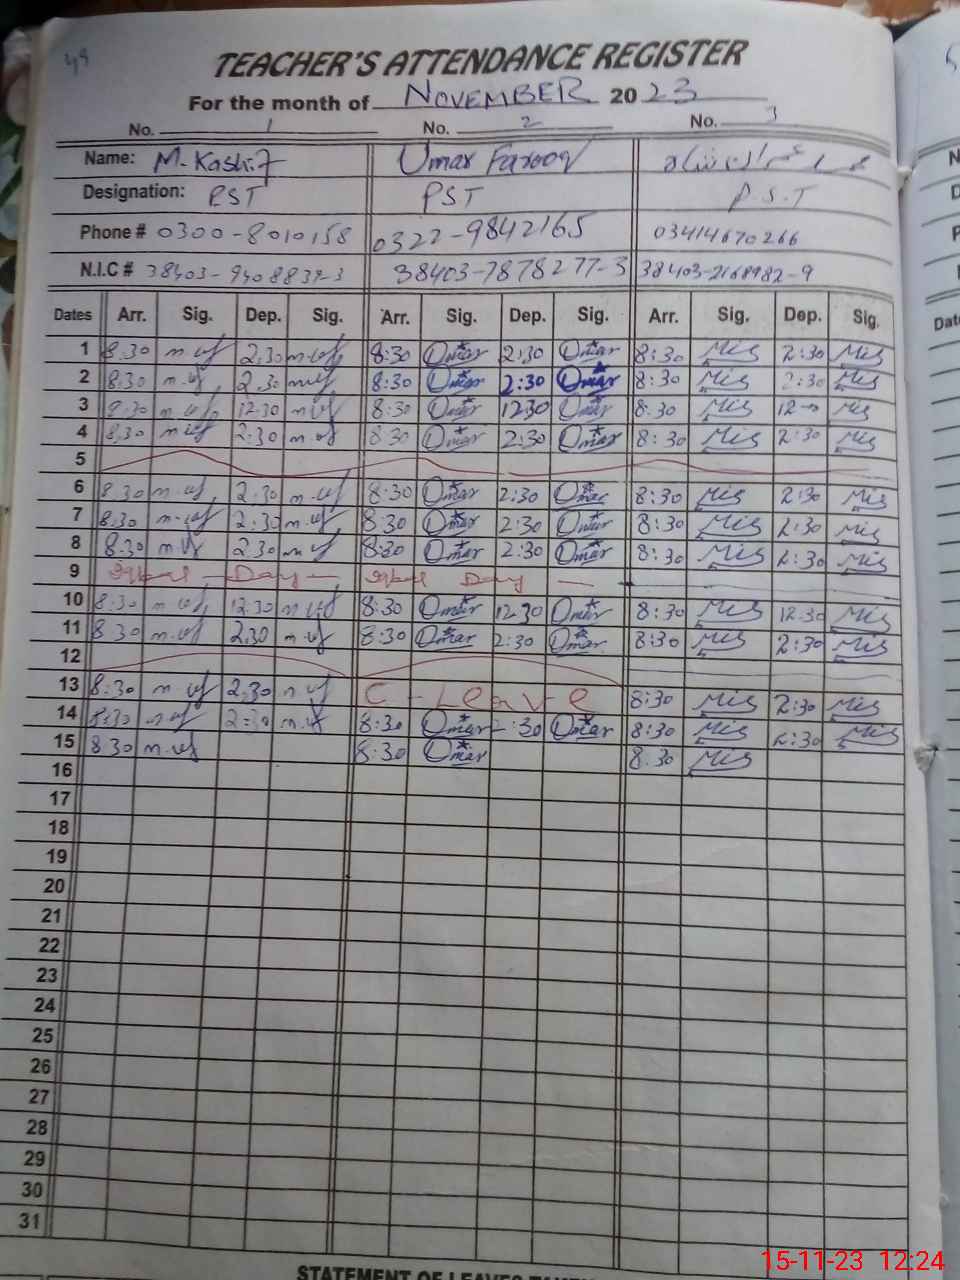 49
TEACHER'S ATTENDANCE REGISTER
For the month of NOVEMBER 2023
No. 1 No. 2 No. 3
Name: M. Kashif Umar Farooq
Designation: PST PST P.S.T
Phone # 0300-8010158 0322-9842165 03414670266
N.I.C # 38403-7878277-3 38403-2168982-9
Dates Arr. Sig. Dep. Sig. Arr. Sig. Dep. Sig. Arr. Sig. Dep. Sig.
1 8.30 2.30 8:30 Omar 2:30 Omar 8:30 2:30
2 8.30 2.30 8:30 Omar 2:30 Omar 8:30 2:30
3 8.30 12.30 8:30 Omar 12:30 Omar 8:30
4 8.30 2:30 8:30 Omar 2:30 Omar 8:30 2:30
5
6 8.30 2.30 8:30 Omar 2:30 Omar 8:30 2:30
7 8:30 2:30 8:30 Omar 2:30 Omar 8:30 2:30
8 8:30 2.30 8:30 Omar 2:30 Omar 8:30 2:30
9 Iqbal - Day - Iqbal Day -
10 8:30 12:30 8:30 Omar 12:30 Omar 8:30 12:30
11 8:30 2:30 8:30 Omar 2:30 Omar 8:30 2:30
12
13 8:30 2:30 C - Leave 8:30 2:30
14 8:30 2:30 8:30 Omar 2:30 Omar 8:30 2:30
15 8:30 8:30 Omar 8:30
16
17
18
19
20
21
22
23
24
25
26
27
28
29
30
31
STATEMENT OF LEAVES
15-11-23 12:24